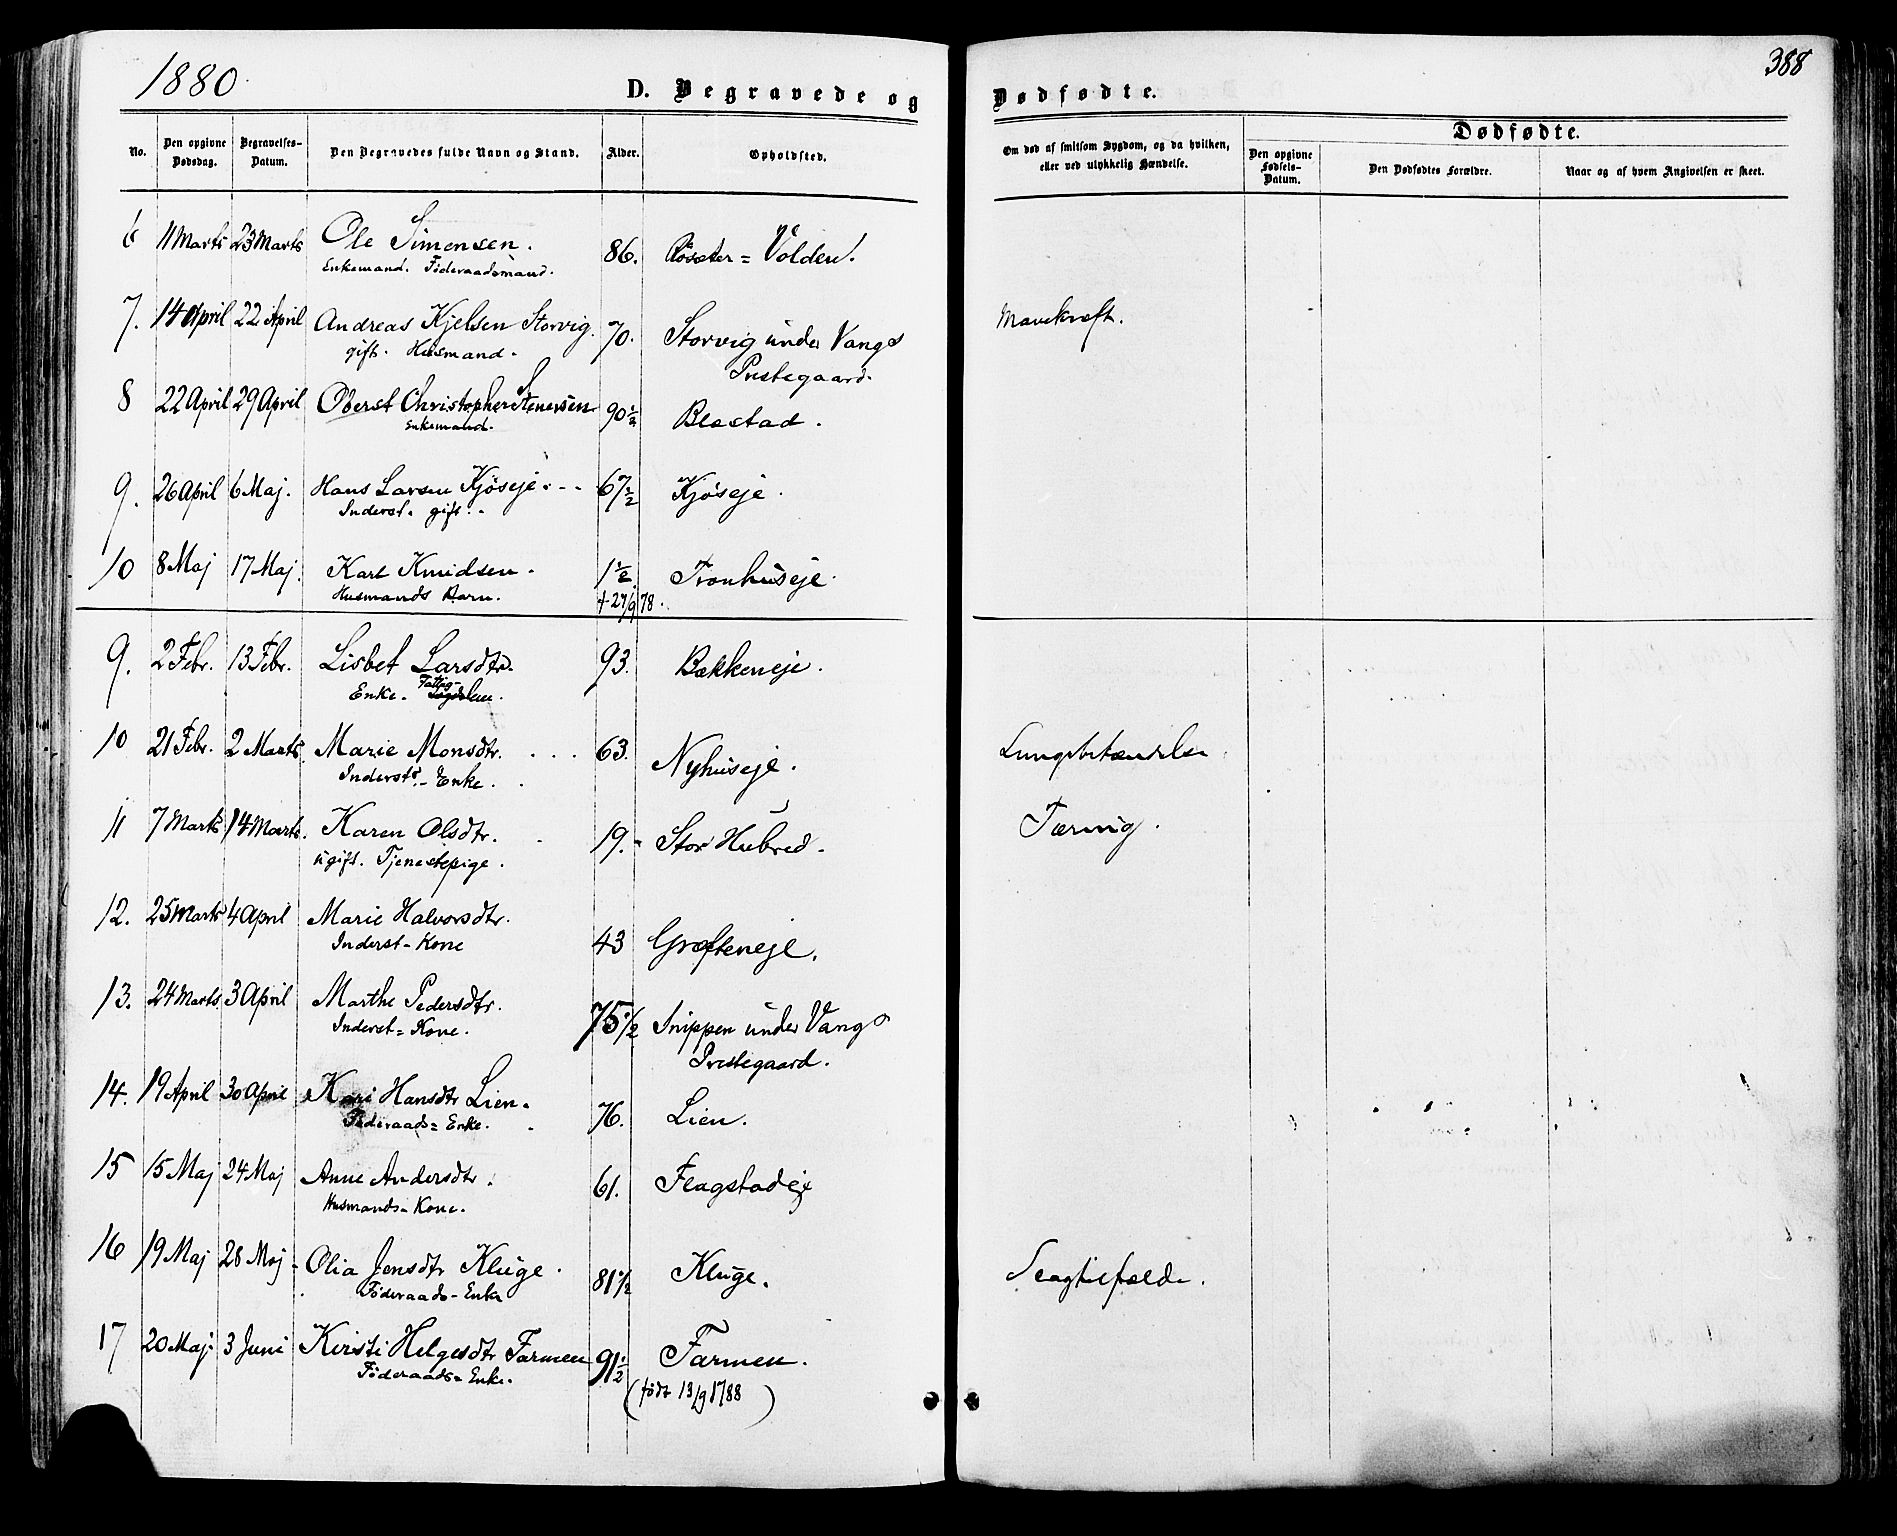 1880
D. Begravede og Dødfødte.
388
No.
Den opgivne Dødsdag.
Begravelses-Datum.
Den Begravedes fulde Navn og Stand.
Alder.
Opholdsted.
Om død af smitsom Sygdom, og da hvilken, eller ved ulykkelig Hændelse.
Dødfødte.
Den opgivne Fødsels-Datum.
Den Dødfødtes Forældre.
Naar og af hvem Angivelsen er skeet.
6 11 Marts 23 Marts Ole Simensen. 86. Røsæter = Volden.
Enkemand. Föderaadsmand.
7. 14 April 22 April Andreas Kjelsen Storvig. 70. Storvig under Vangs Mavekræft.
gift. Husmand. Prestegaard.
8 22 April 29 April Oberst Christopher Stenersen 90½ Blæstad.
Enkemand.
9. 26 April 6 Maj. Hans Larsen Kjöseje. 67½ Kjöseje.
Inderst. gift.
10 8 Maj 17 Maj. Karl Knudsen. 1½ Tronhuseje.
Husmands Barn. f. 27/9 78.
9. 2 Febr. 13 Febr. Lisbet Larsdtr. 93. Bækkeneje.
Enke. Fattig-lem.
10 21 Febr. 2 Marts. Marie Monsdtr. 63. Nyhuseje. Lungebetændelse
Inderst's - Enke.
11 7 Marts 14 Marts. Karen Olsdtr. 19. Stor Hubred. Tæring.
ugift. Tjenestepige.
12. 25 Marts 4 April Marie Halvorsdtr. 43 Græfteneje.
Inderst - Kone
13. 24 Marts. 3 April Marthe Pedersdtr. 75½ Snippen under Vangs
Inderst = Kone. Prestegaard.
14. 19 April 30 April Kari Hansdtr Lien. 76. Lien.
Föderaads = Enke.
15 15 Maj 24 Maj Anne Andersdtr. 61. Flagstadeje
Husmands - Kone.
16 19 Maj 28 Maj - Olia Jensdtr Kluge. 81½ Kluge. Slagtilfælde.
Föderaads - Enke
17 20 Maj 3 Juni Kirsti Helgesdtr Farmen 91½ Farmen.
Föderaads = Enke. (född 13/9 1788)